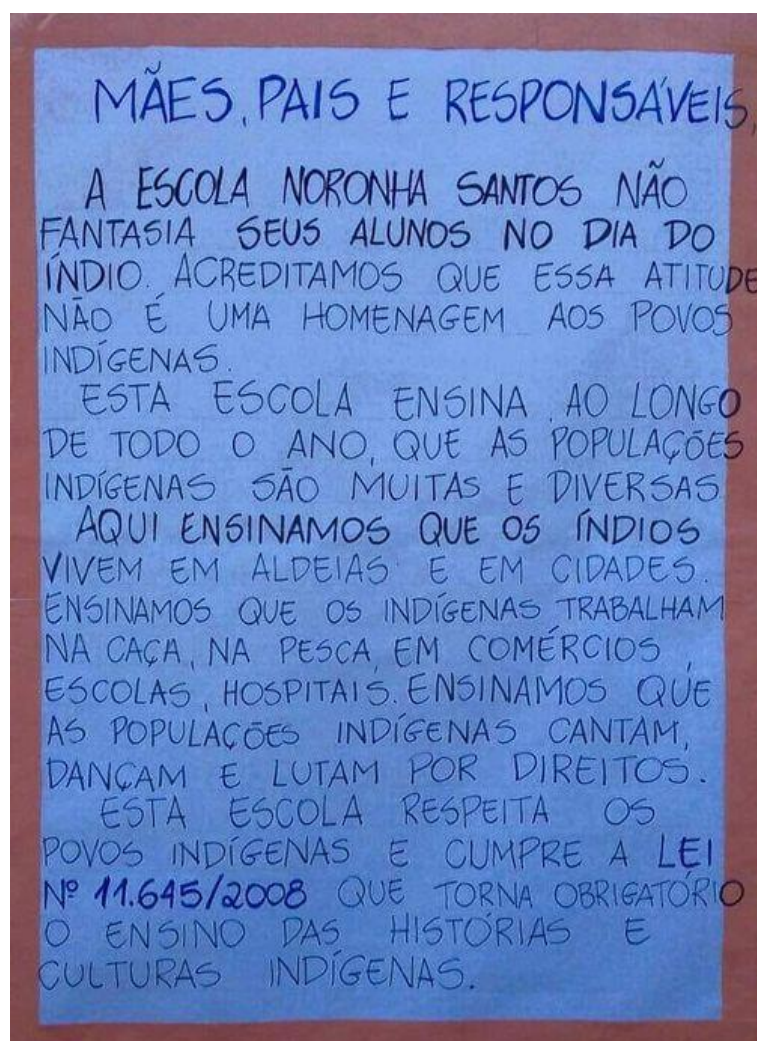 MÃES, PAIS E RESPONSÁVEIS,
A ESCOLA NORONHA SANTOS NÃO
FANTASIA SEUS ALUNOS NO DIA DO
ÍNDIO. ACREDITAMOS QUE ESSA ATITUDE
NÃO É UMA HOMENAGEM AOS POVOS
INDÍGENAS.
ESTA ESCOLA ENSINA, AO LONGO
DE TODO O ANO, QUE AS POPULAÇÕES
INDÍGENAS SÃO MUITAS E DIVERSAS
AQUI ENSINAMOS QUE OS ÍNDIOS
VIVEM EM ALDEIAS E EM CIDADES.
ENSINAMOS QUE OS INDÍGENAS TRABALHAM
NA CAÇA, NA PESCA, EM COMÉRCIOS,
ESCOLAS, HOSPITAIS. ENSINAMOS QUE
AS POPULAÇÕES INDÍGENAS CANTAM,
DANÇAM E LUTAM POR DIREITOS.
ESTA ESCOLA RESPEITA OS
POVOS INDÍGENAS E CUMPRE A LEI
Nº 11.645/2008 QUE TORNA OBRIGATÓRIO
O ENSINO DAS HISTÓRIAS E
CULTURAS INDÍGENAS.